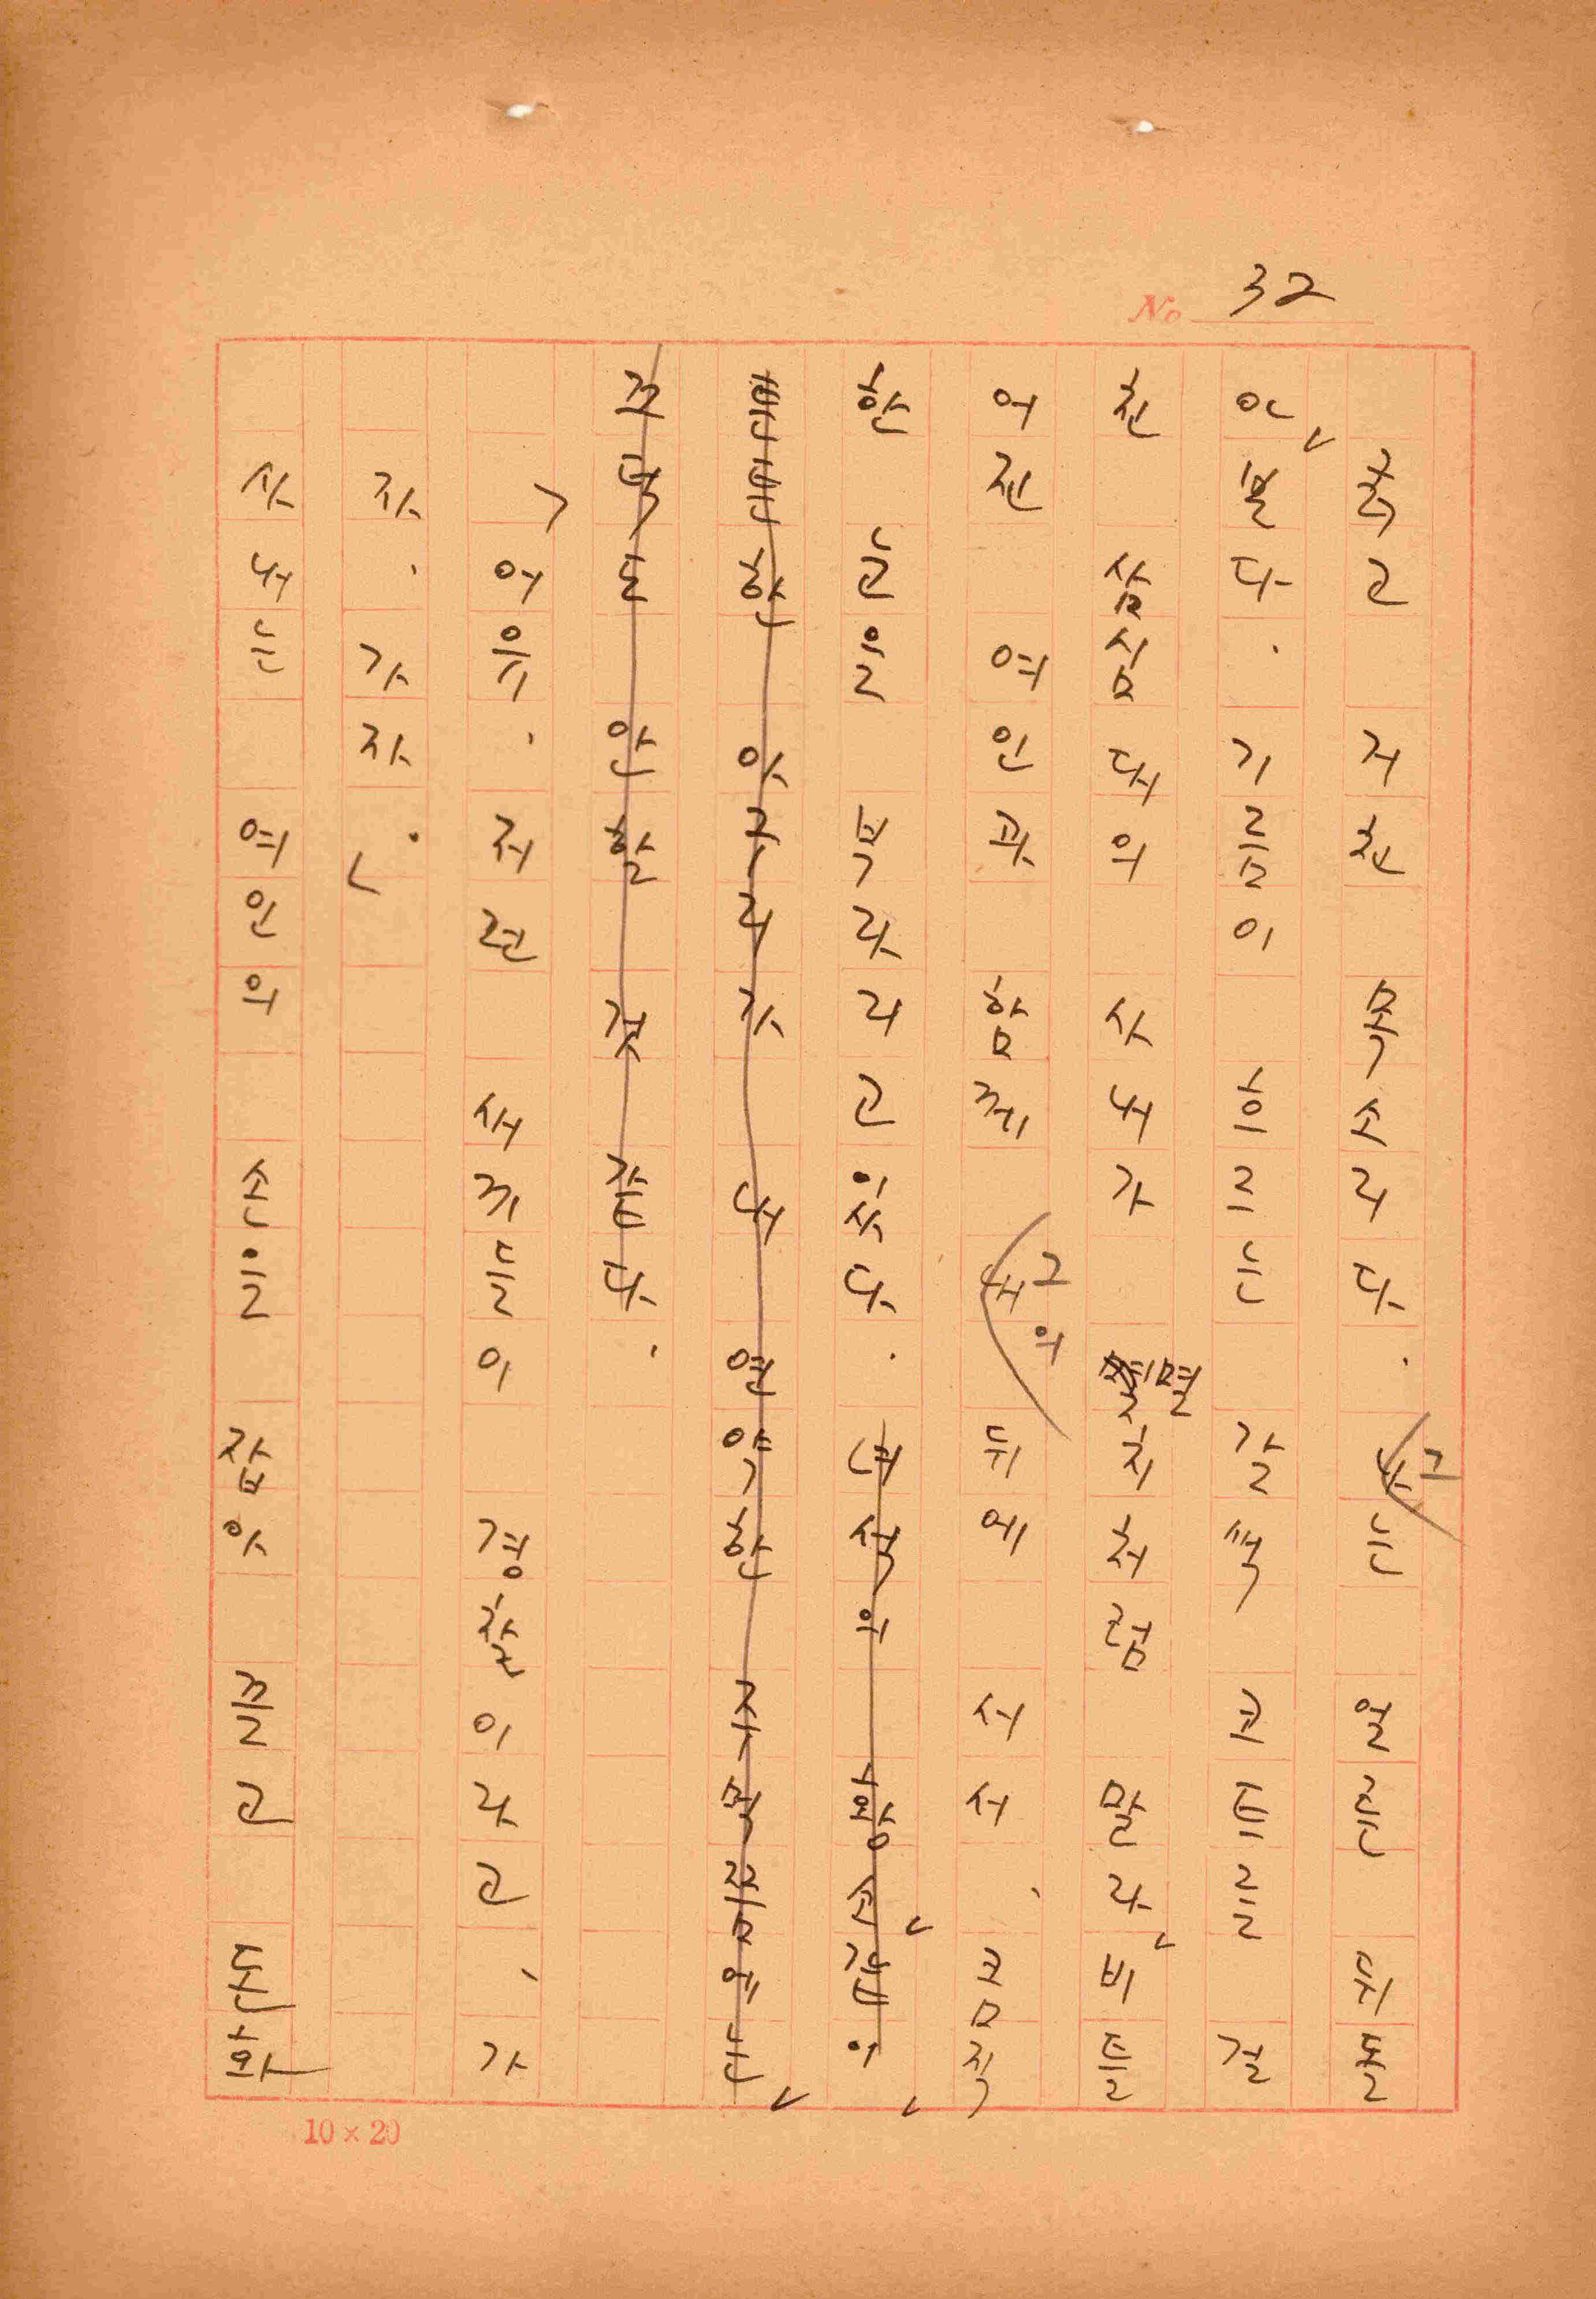 32
굵고 거친 목소리다. 나 그는 얼른 뒤돌
아 본다. 기름이 흐르는 갈색 코트를 걸
친 삼십대의 사내가 멸치처럼 말라비틀
어진 여인과 함께 내 그의 뒤에 서서, 끔직
한 눈을 부라리고 있다. 녀석의 황소같이
뻔뻔한 아구리가 내 연약한 주먹쯤에는
끄덕도 안할 것 같다.
「어유, 저런 새끼들이 경찰이라고, 가
자, 가자.」
사내는 여인의 손을 잡아 끌고 돈화
No
10×20